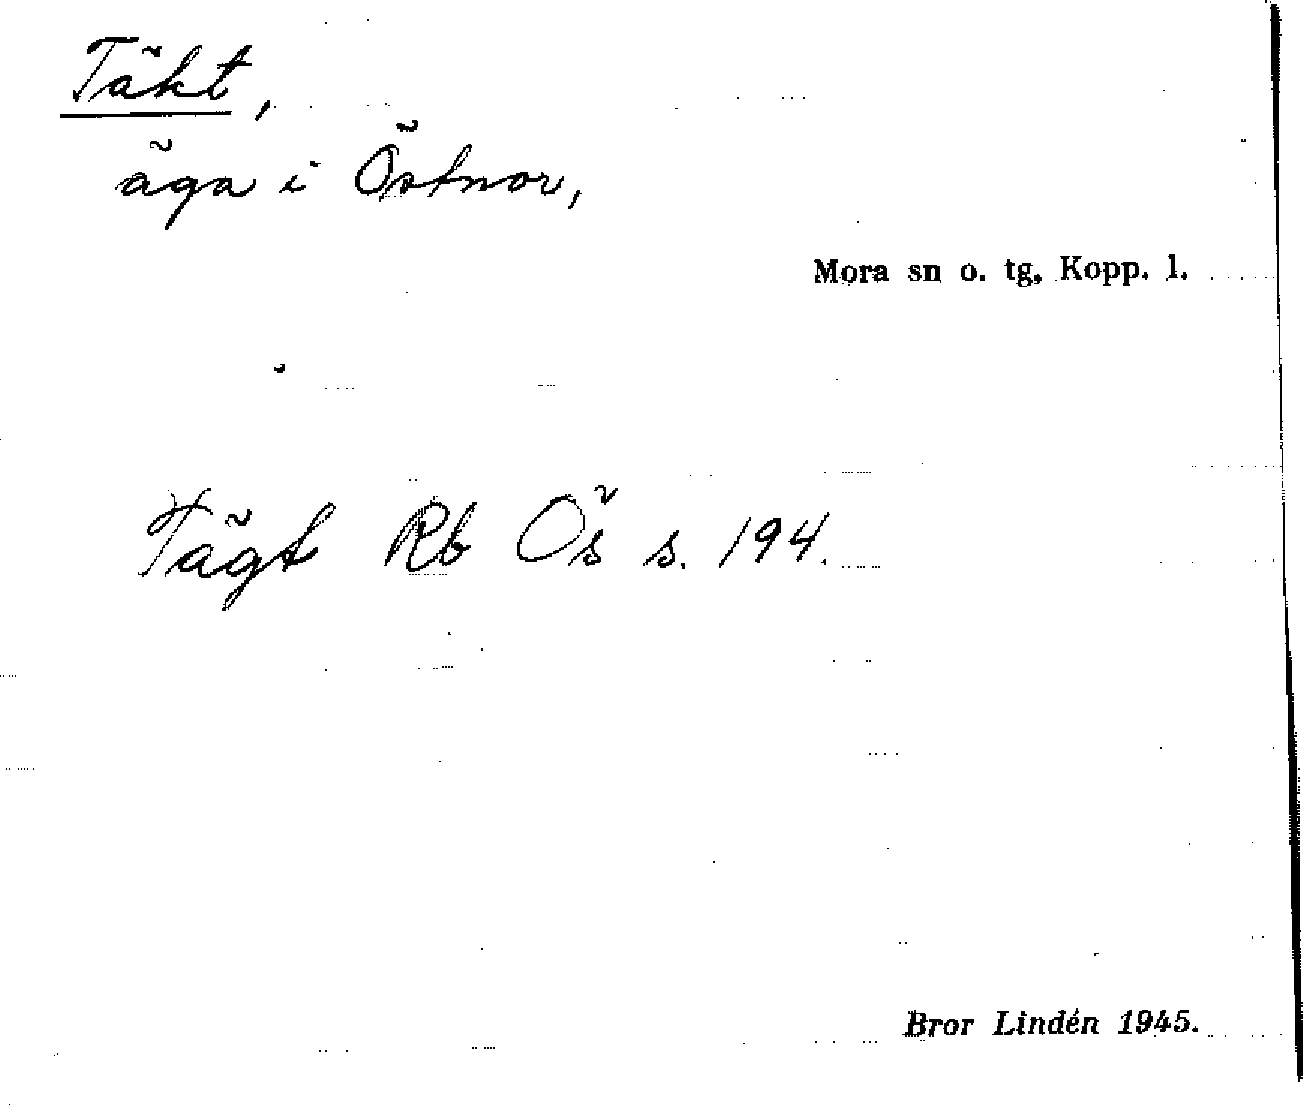 Täkt,
äga i Östnor,
Mora sn o. tg, Kopp. l.
Tägt Rb Ös s. 194.
Bror Lindén 1945.